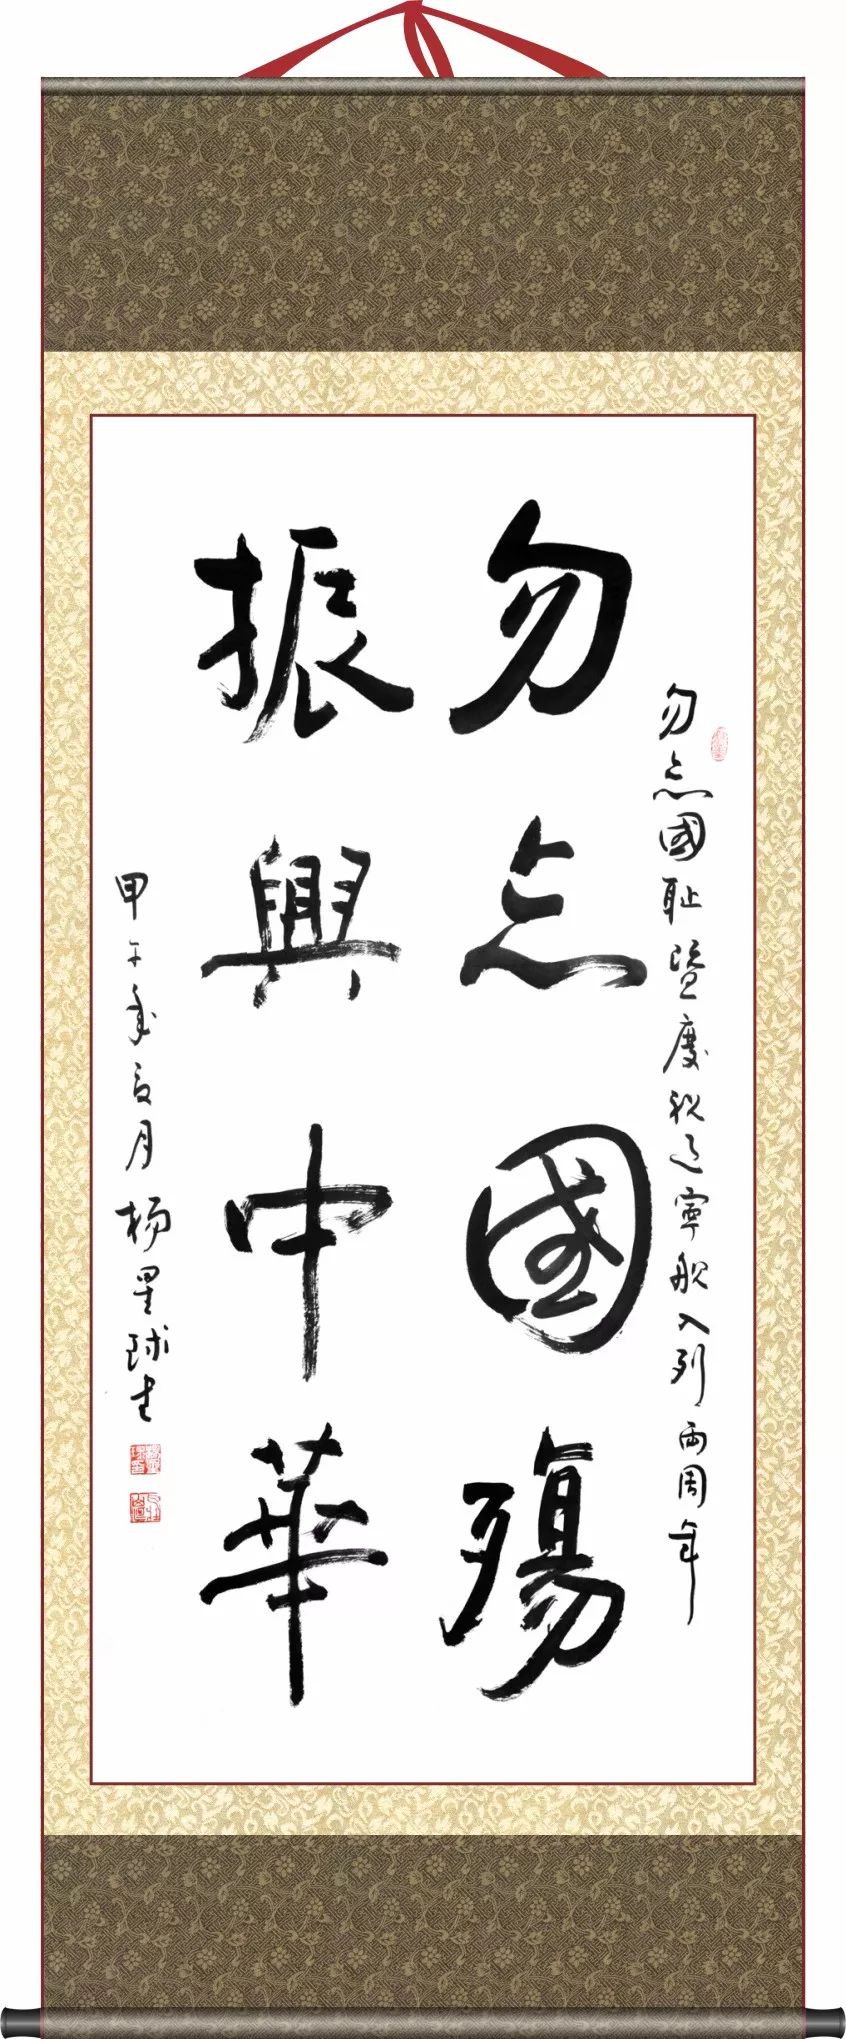 勿忘國耻暨慶祝辽寧舰入列兩周年
勿忘國殤
振興中華
甲午年夏月杨星球书